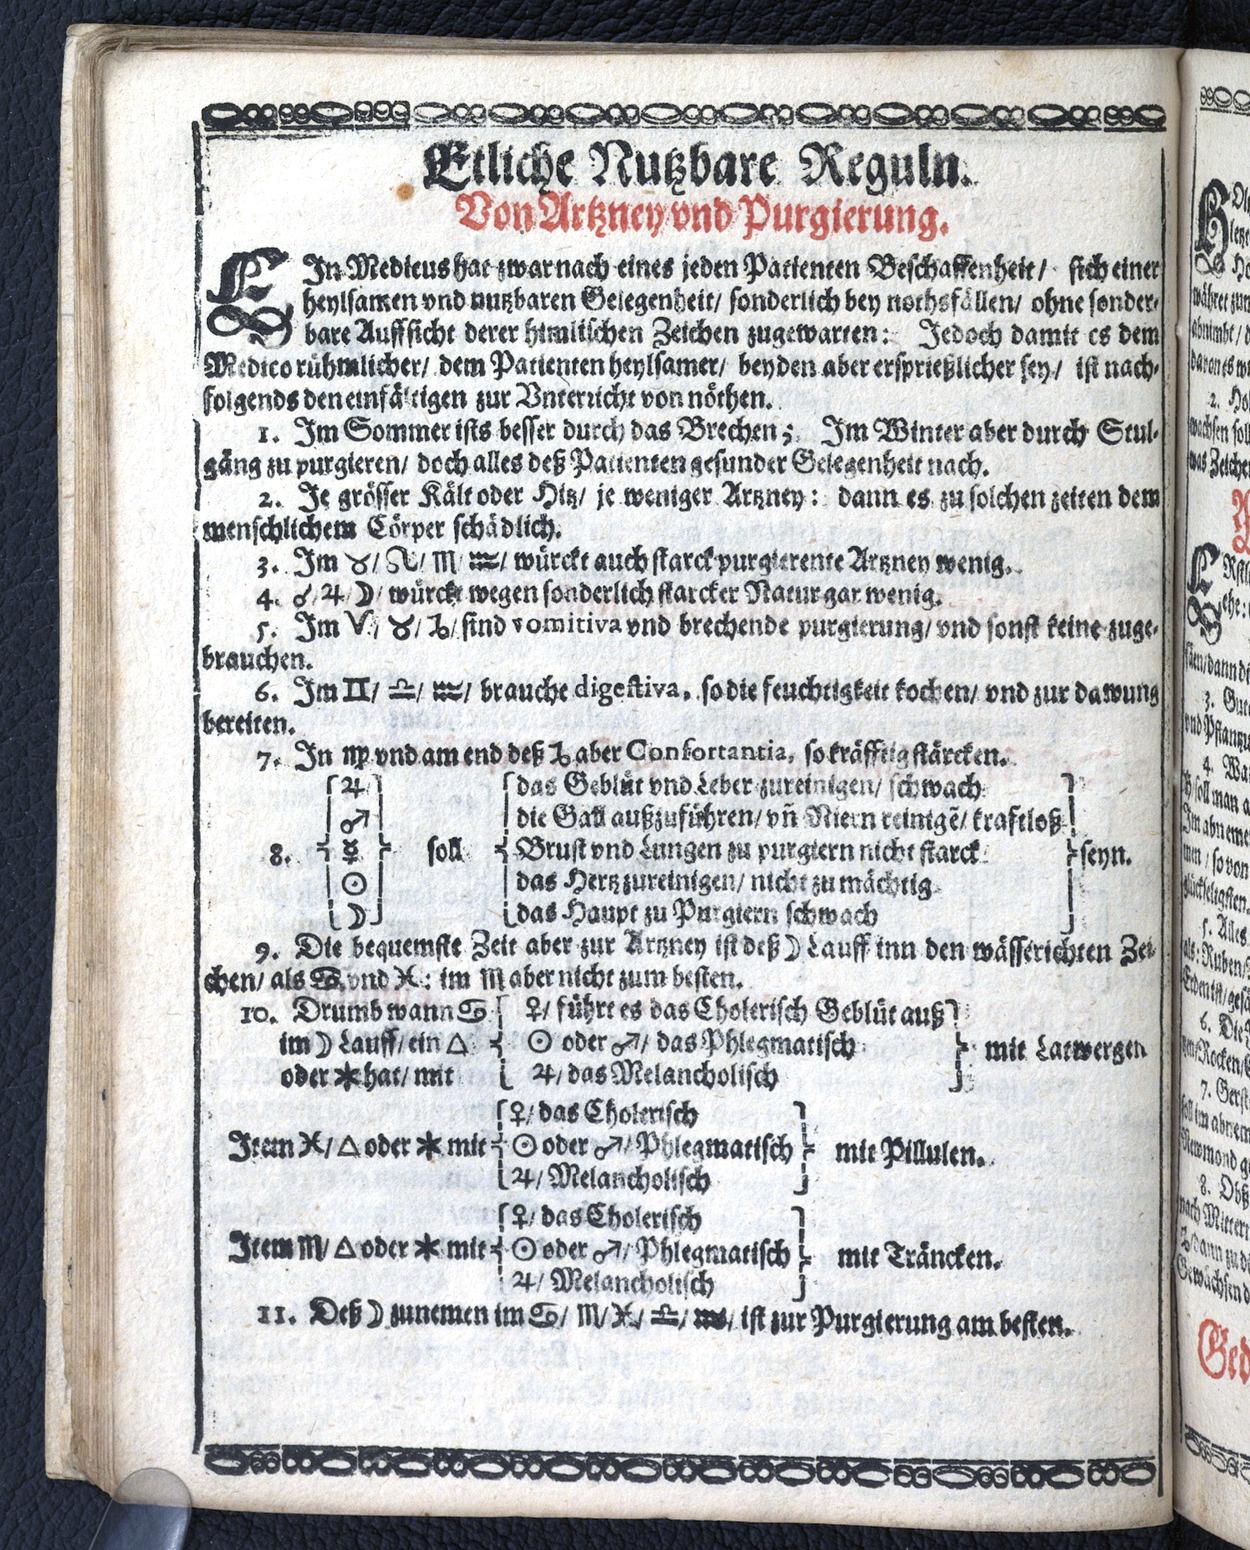 Etliche Nutzbare Reguln.
Von Artzney vnd Purgierung.
EIn Medicus hat zwar nach eines jeden Patienten Beschaffenheit/ sich einer
heylsamen vnd nutzbaren Gelegenheit/ sonderlich bey nothsfällen/ ohne sonder-
bare Auffsicht derer himlischen Zeichen zugewarten: Jedoch damit es dem
Medico rühmlicher/ dem Patienten heylsamer/ beyden aber ersprießlicher sey/ ist nach-
folgends den einfältigen zur Vnterricht von nöthen.
1. Im Sommer ists besser durch das Brechen; Im Winter aber durch Stul-
gäng zu purgieren/ doch alles deß Patienten gesunder Gelegenheit nach.
2. Je grösser Kält oder Hitz/ je weniger Artzney: dann es zu solchen zeiten dem
menschlichem Cörper schädlich.
3. Im ♉/ ♌/ ♏/ ♒/ würckt auch starck purgierente Artzney wenig.
4. ☌/ ♃/ ☽/ würckt wegen sonderlich starcker Natur gar wenig.
5. Im ♈/ ♉/ ♑/ sind vomitiva vnd brechende purgierung/ vnd sonst keine zuge-
brauchen.
6. Im ♊/ ♎/ ♒/ brauche digestiva, so die feuchtigkeit kochen/ vnd zur dawung
bereiten.
7. In ♍ vnd am end deß ♑ aber Confortantia, so kräfftig stärcken.
♃ das Geblüt vnd Leber zureinigen/ schwach
♂ die Gall außzuführen/ vñ Niern reinigẽ/ kraftloß
8. ☿ soll Brust vnd Lungen zu purgiern nicht starck seyn.
☉ das Hertz zureinigen/ nicht zu mächtig
☽ das Haupt zu Purgiern schwach
9. Die bequemste Zeit aber zur Artzney ist deß ☽ Lauff inn den wässerichten Zei-
chen/ als ♋ vnd ♓: im ♏ aber nicht zum besten.
10. Drumb wann ♋ ♀/ führt es das Cholerisch Geblüt auß
im ☽ Lauff/ ein △ ☉ oder ♂/ das Phlegmatisch mit Latwergen
oder ⚹ hat/ mit ♃/ das Melancholisch
♀/ das Cholerisch
Item ♓/ △ oder ⚹ mit ☉ oder ♂/ Phlegmatisch mit Pillulen.
♃/ Melancholisch
♀/ das Cholerisch
Item ♏/ △ oder ⚹ mit ☉ oder ♂/ Phlegmatisch mit Träncken.
♃/ Melancholisch
11. Deß ☽ zunemen im ♋/ ♏/ ♓/ ♎/ ♒/ ist zur Purgierung am besten.